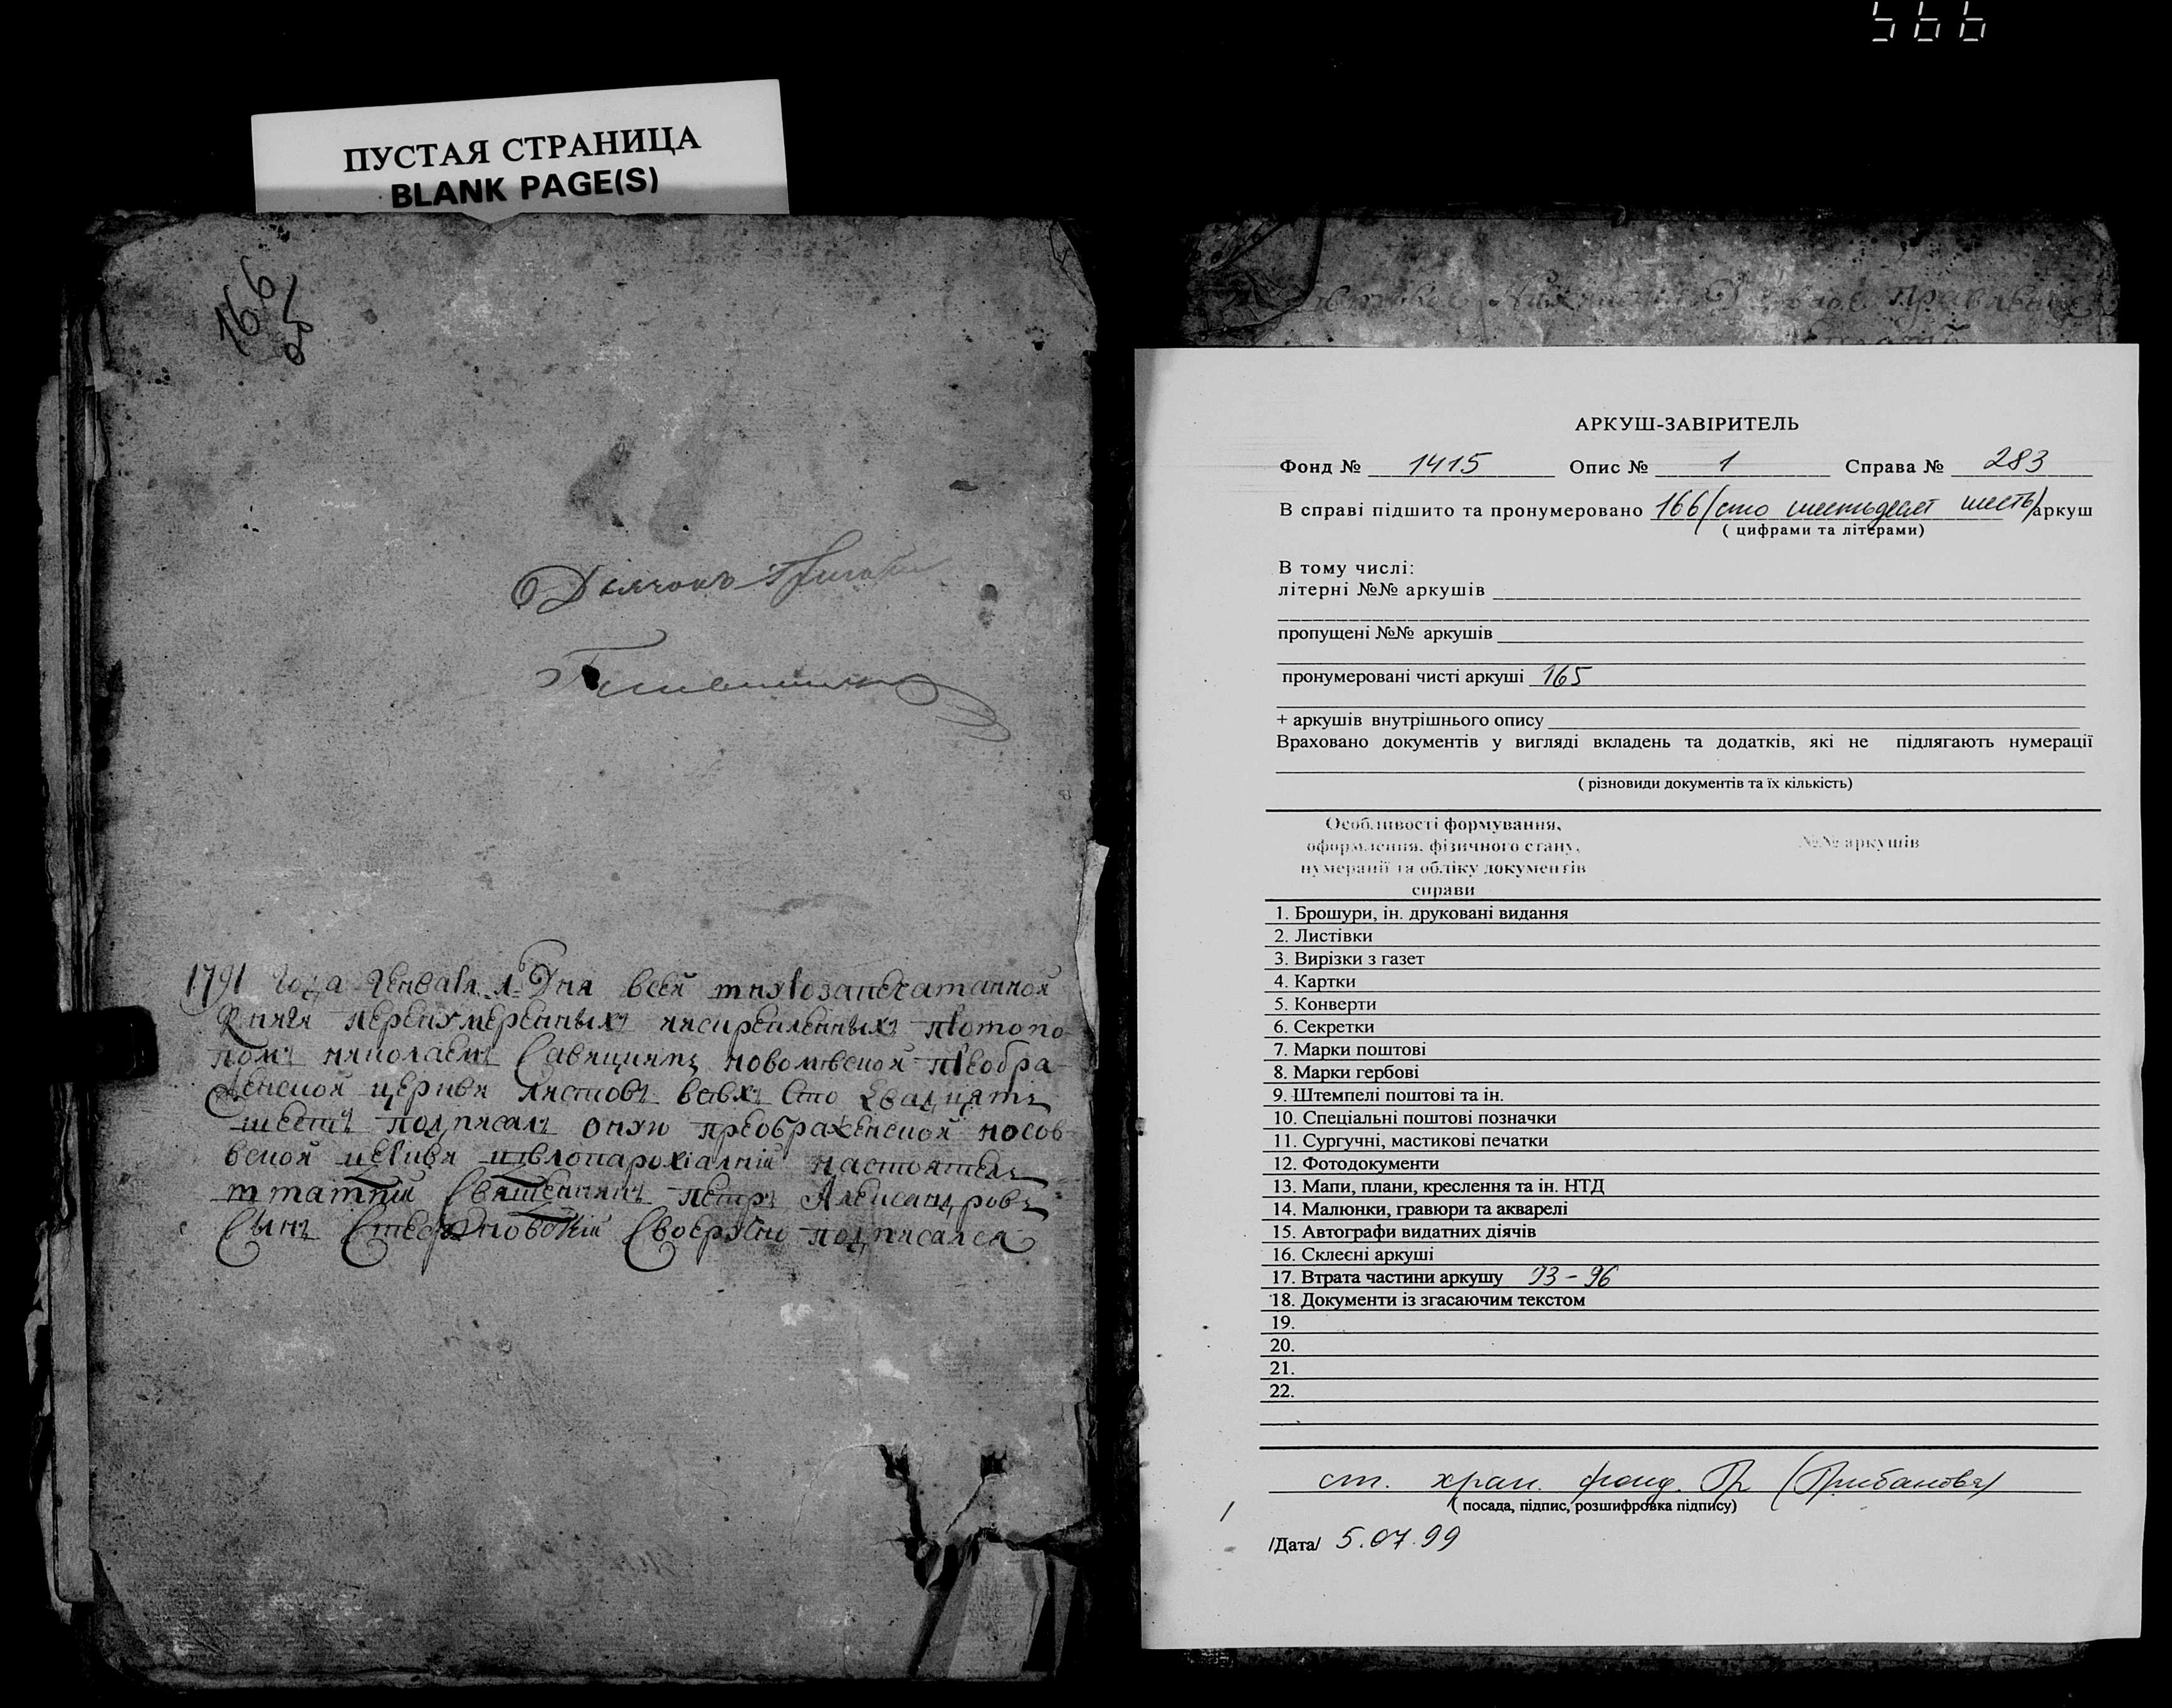 566
ПУСТАЯ СТРАНИЦА
BLANK PAGE(S)
166
об
Дьячокъ Григорій
1791 года генваря Дня всей шнурозапечатанной
книги перенумеренныхъ искрепленныхъ протопо-
помъ николаемъ новомѣской преобра-
женской церкви листовъ всѣхъ сто двадцять
шесть подписалъ оную преображенской носов-
ской церкви цѣлопарохіалній настоятель
штатній священникъ петръ Александровъ
Сынъ Стефановскій Своеручно подписался
АРКУШ-ЗАВІРИТЕЛЬ
Фонд № 1415 Опис № 1 Справа № 283
В справі підшито та пронумеровано 166 (сто шестьдесят шесть) аркуш
( цифрами та літерами)
В тому числі:
літерні №№ аркушів
пропущені №№ аркушів
пронумеровані чисті аркуші 165
+ аркушів внутрішнього опису
Враховано документів у вигляді вкладень та додатків, які не підлягають нумерації
( різновиди документів та їх кількість)
Особливості формування, оформлення, фізичного стану, нумерації та обліку документів справи
№№ аркушів
1. Брошури, ін. друковані видання
2. Листівки
3. Вирізки з газет
4. Картки
5. Конверти
6. Секретки
7. Марки поштові
8. Марки гербові
9. Штемпелі поштові та ін.
10. Спеціальні поштові позначки
11. Сургучні, мастикові печатки
12. Фотодокументи
13. Мапи, плани, креслення та ін. НТД
14. Малюнки, гравюри та акварелі
15. Автографи видатних діячів
16. Склеєні аркуші
17. Втрата частини аркушу 93 - 96
18. Документи із згасаючим текстом
19.
20.
21.
22.
ст. хран. фонд. Гр (Грибанова)
( посада, підпис, розшифровка підпису)
/Дата/ 5.07.99